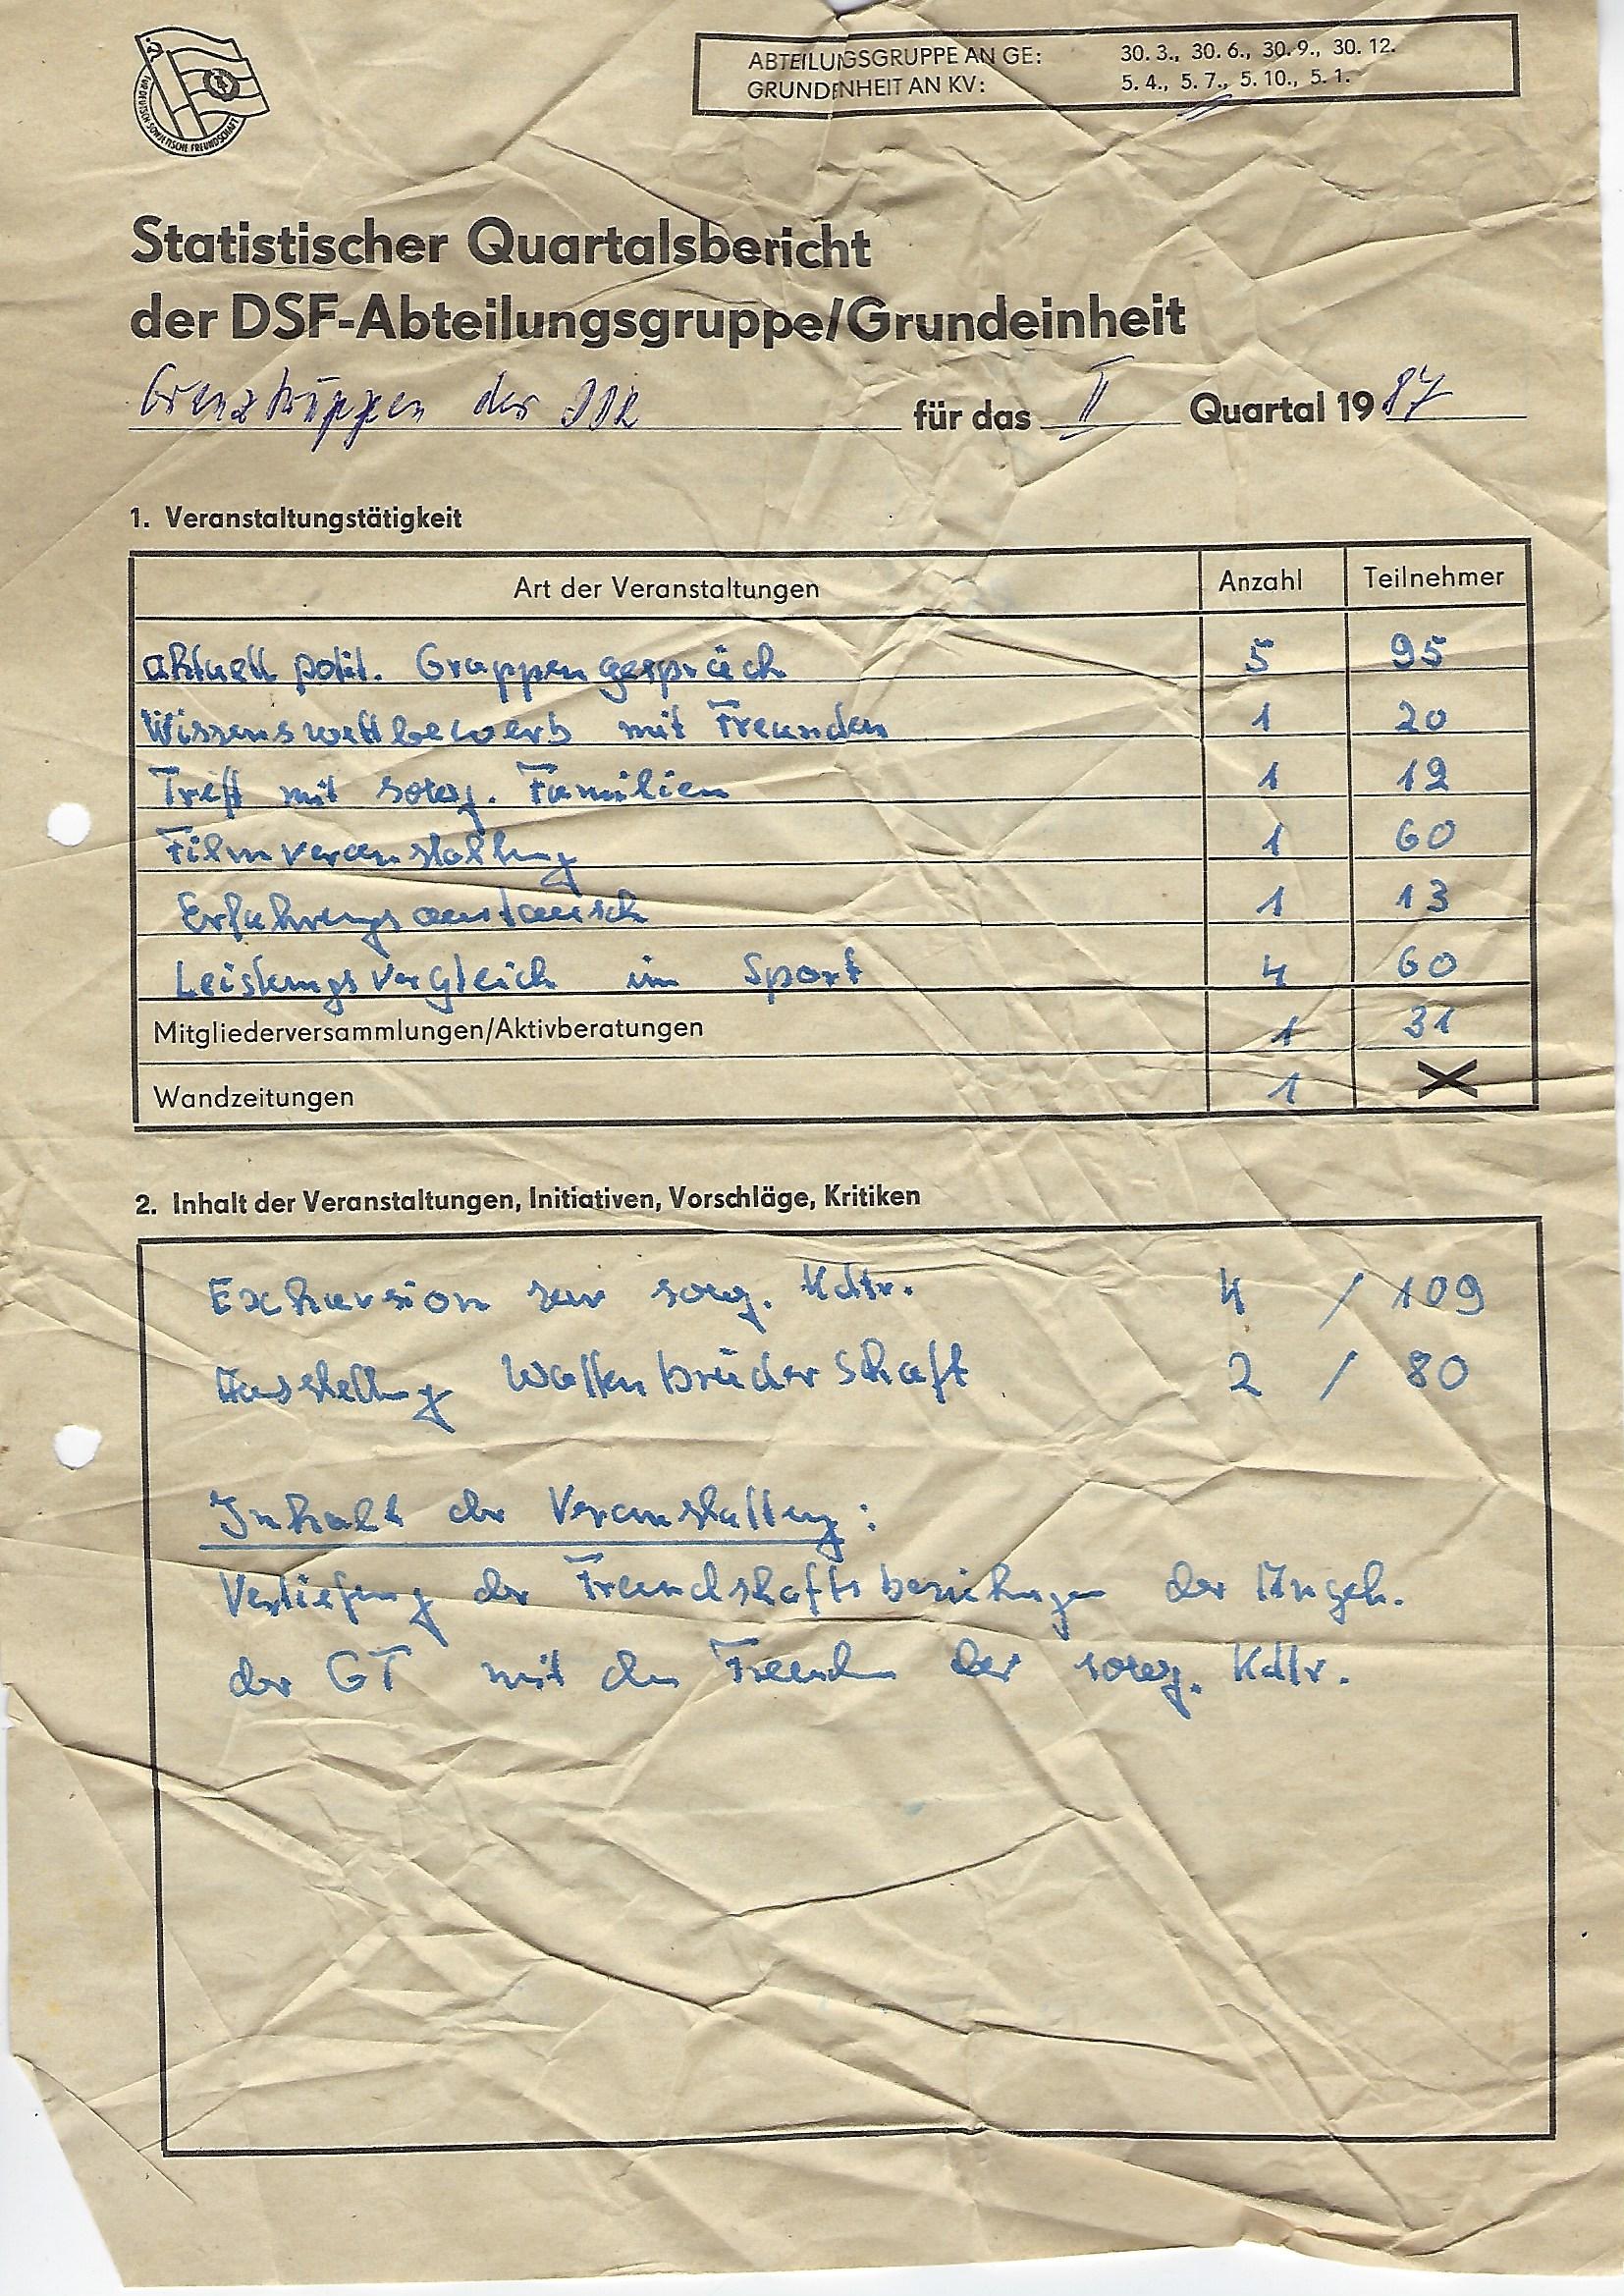 FÜR DEUTSCH-SOWJETISCHE FREUNDSCHAFT
ABTEILUNGSGRUPPE AN GE: 30. 3., 30. 6., 30. 9., 30. 12.
GRUNDEINHEIT AN KV: 5. 4., 5. 7., 5. 10., 5. 1.
Statistischer Quartalsbericht
der DSF-Abteilungsgruppe/Grundeinheit
Grenztruppen der DDR für das II Quartal 1987
1. Veranstaltungstätigkeit
Art der Veranstaltungen Anzahl Teilnehmer
aktuell polit. Gruppengespräch 5 95
Wissenswettbewerb mit Freunden 1 20
Treff mit sowj. Familien 1 12
Filmveranstaltung 1 60
Erfahrungsaustausch 1 13
Leistungsvergleich im Sport 4 60
Mitgliederversammlungen/Aktivberatungen 1 31
Wandzeitungen 1 X
2. Inhalt der Veranstaltungen, Initiativen, Vorschläge, Kritiken
Exkursion zur sowj. Kdtr. 4 / 109
Ausstellung Waffenbrüderschaft 2 / 80
Inhalt der Veranstaltung:
Vertiefung der Freundschaftsbeziehungen der Angeh.
der GT mit den Freunden der sowj. Kdtr.